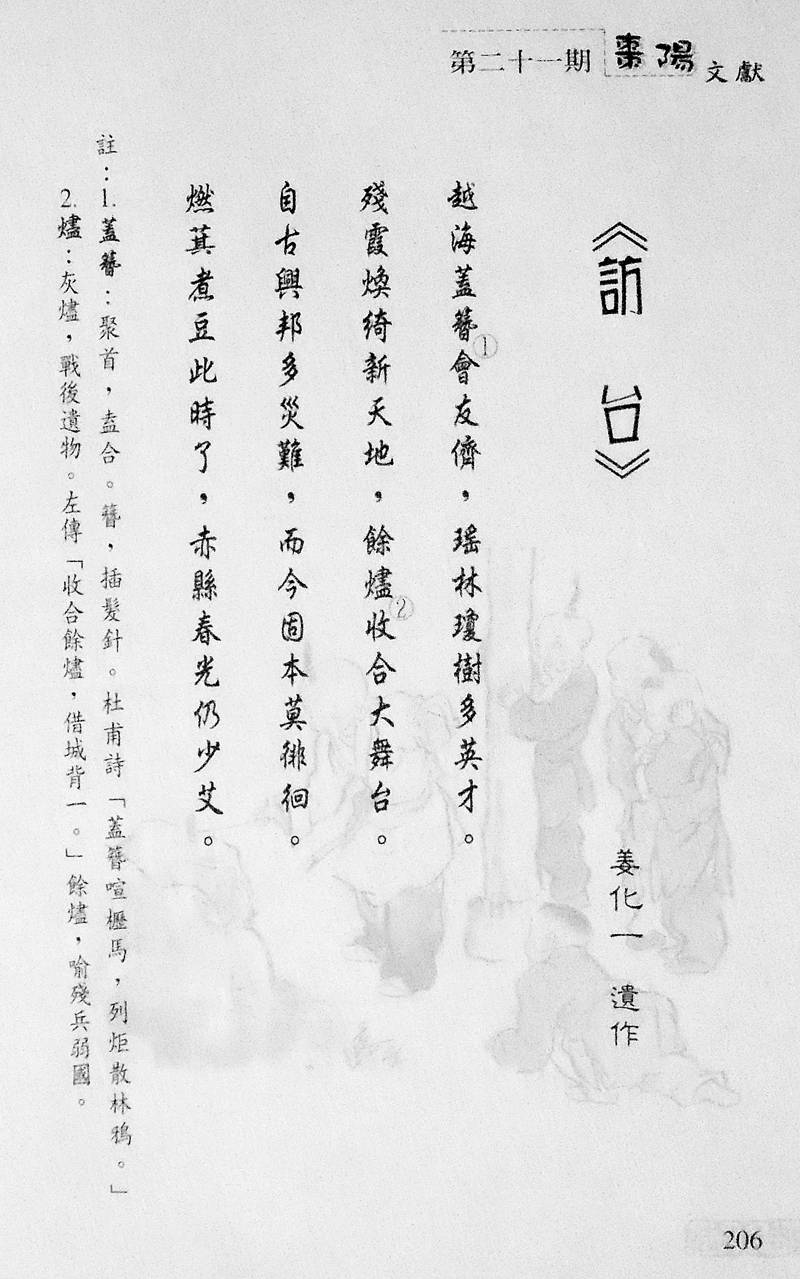 第二十一期 棗陽文獻
《訪台》
姜化一 遺作
越海蓋簪①會友儕，瑤林瓊樹多英才。
殘霞煥綺新天地，餘燼②收合大舞台。
自古興邦多災難，而今固本莫徘徊。
燃萁煮豆此時了，赤縣春光仍少艾。
註：1. 蓋簪：聚首，盍合。簪，插髮針。杜甫詩「蓋簪喧櫪馬，列炬散林鴉。」
2. 燼：灰燼，戰後遺物。左傳「收合餘燼，借城背一。」餘燼，喻殘兵弱國。
206